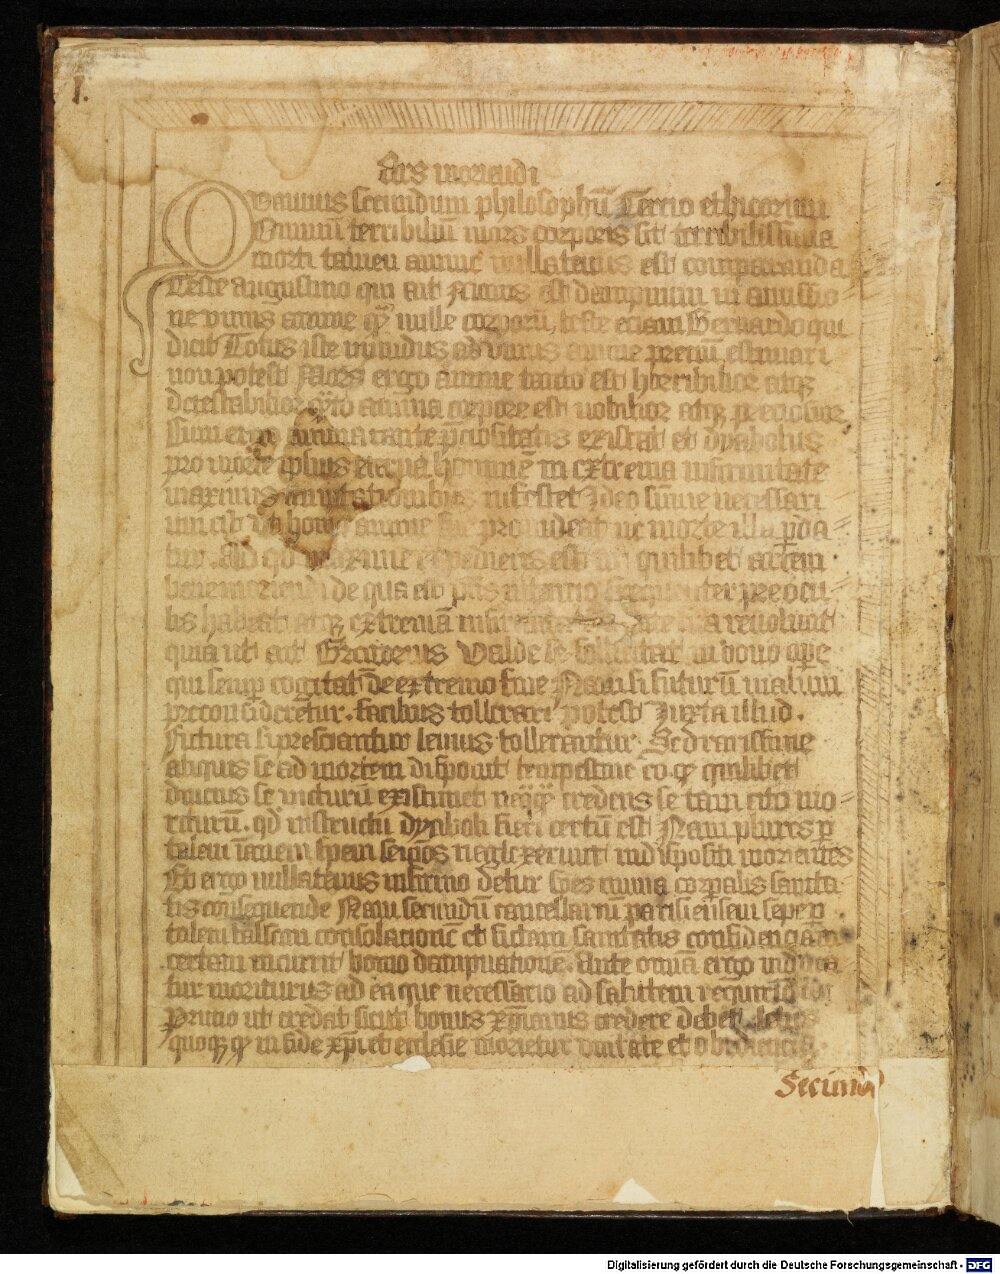 1.
Ars moriendi
Quamuis secundum philosophū Tercio ethicorum
Omniū terribiliū mors corporis sit terribilissima
morti tamen anime nullatenus est comparanda
Teste augustino qui ait Maius est dampnum in amissio
ne vnius anime qȝ mille corporū, teste eciam Bernardo qui
dicit Totus iste mundus ad vnius anime preciū estimari
non potest Mors ergo anime tanto est horribilior atqȝ
detestabilior qȝto anima corpore est nobilior atqȝ preciosior
Cum ergo anima tante p̄ciositatis existat et dyabolus
pro morte ipsius eterna hominē in extrema infirmitate
maximis temptationibus infestet Ideo sūme necessari
um est vt homo anime sue prouideat ne morte illa p̄da
tur. Ad qd̄ maxime expediens est vt quilibet artem
bene moriendi de qua est p̄ns intencio frequenter pre ocu
lis habeat atqȝ extremā infirmitatem mente sua reuoluat
quia ut ait Gregorius Valde se sollicitat in bono opere
qui semp̄ cogitat de extremo fine Nam si futurū malum
preconsideretur. facilius tollerari potest Juxta illud.
Futura si presciantur leuius tollerantur. Sed rarissime
aliquis se ad mortem disponit tempestiue eo. qȝ quilibet
diucius se victurū existimet neqȝqȝ credens se tam cito mo
riturū. qd̄ instinctu dyaboli fieri certū est Nam plures p̄
talem inanem spem seip̄os neglexerunt indispositi morientes
Et ergo nullatenus infirmo detur spes nimia corp̄alis sanita
tis consequende Nam secundū cancellariū parisiensem sepe p̄
talem falsam consolacionē et fictam sanitatis confidenciam
certam incurrit homo dampnationē. Ante omnia ergo inducа
tur moriturus ad ea que necessario ad salutem requirūtur
Primo ut credat sicut bonus xp̄ianus credere debet letus
quoqȝ qȝ in fide xp̄i et ecclesie morietur vnitate et obediencia.
Secunda
Digitalisierung gefördert durch die Deutsche Forschungsgemeinschaft - DFG